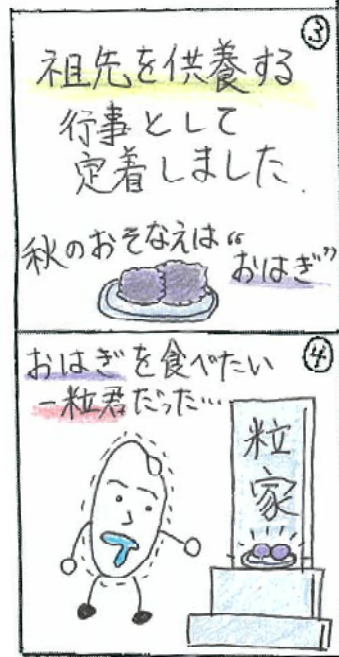 ③
祖先を供養する
行事として
定着しました.
秋のおそなえは“おはぎ”
④
おはぎを食べたい
一粒君だった…
粒家